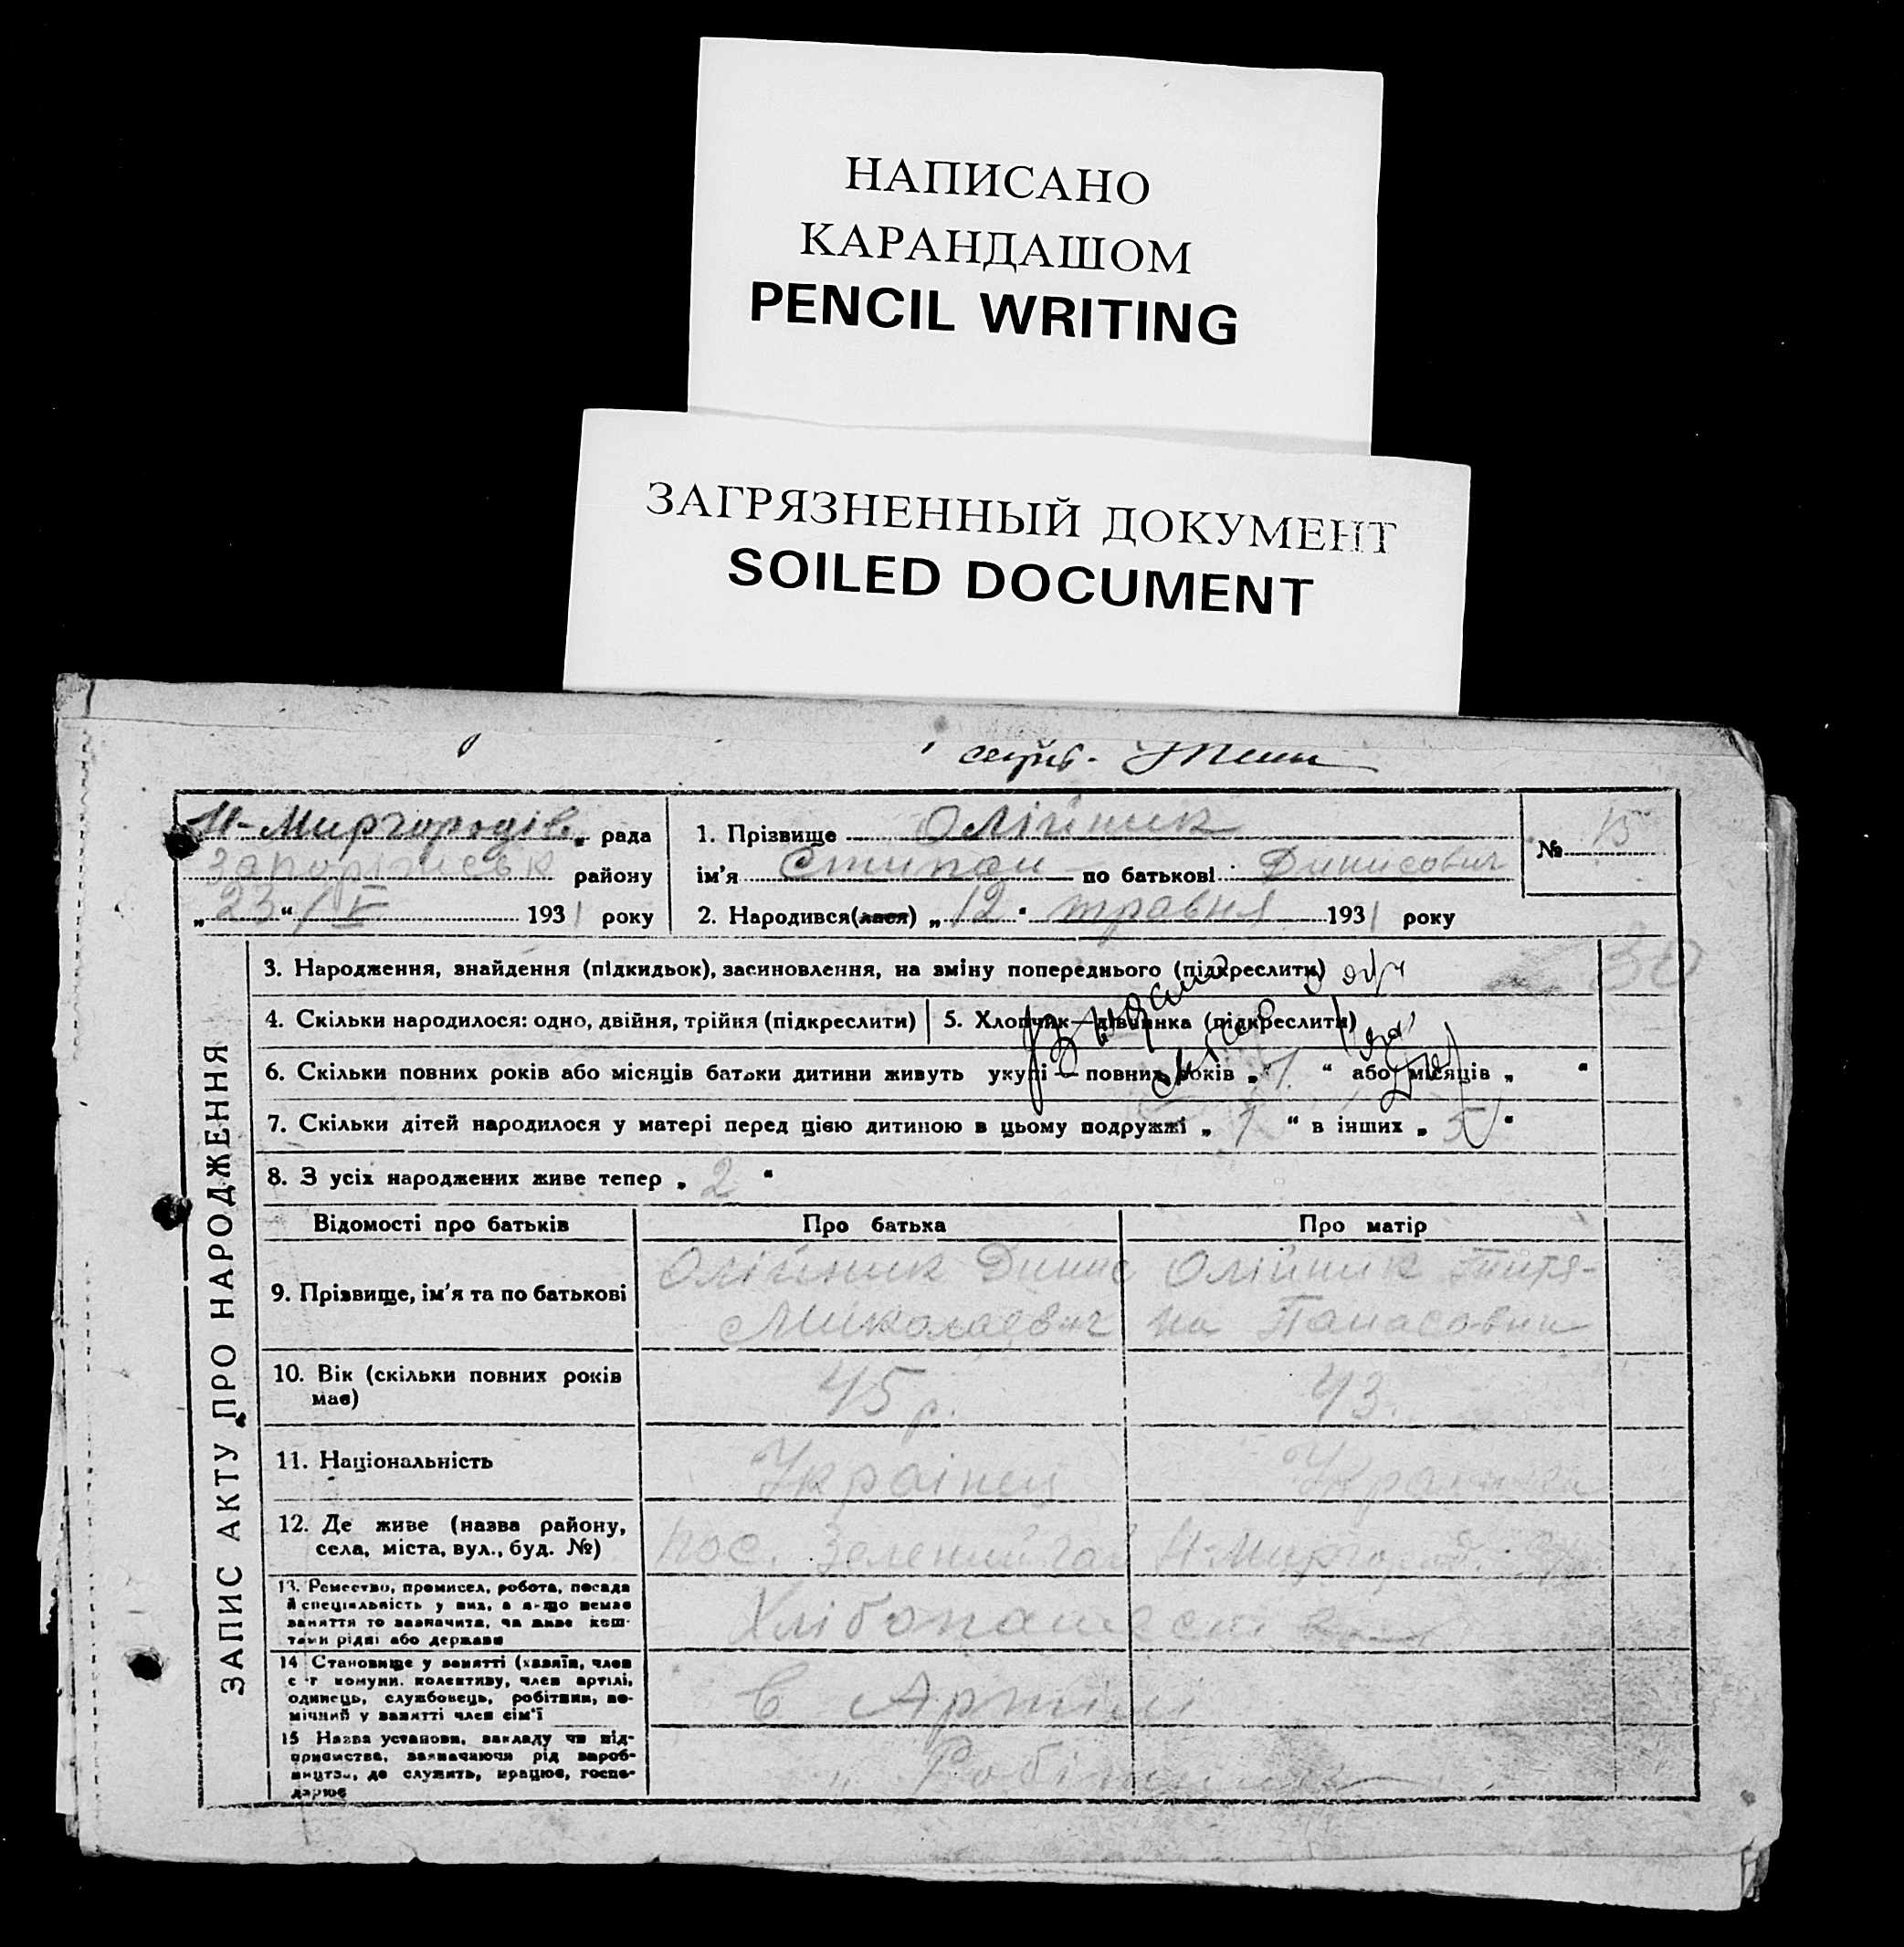 НАПИСАНО
КАРАНДАШОМ
PENCIL WRITING
ЗАГРЯЗНЕННЫЙ ДОКУМЕНТ
SOILED DOCUMENT
Н-Миргородів. рада
район у
„23“ / V 1931 року
1. Прізвище Олійник
ім'я Стипан по батькові Динисович
2. Народився(лася) „12“ травня 1931 року
№ 15
30
ЗАПИС АКТУ ПРО НАРОДЖЕННЯ
3. Народження, знайдення (підкидьок), засиновлення, на зміну попереднього (підкреслити)
4. Скільки народилося: одно, двійня, трійня (підкреслити)
5. Хлопчик—дівчинка (підкреслити)
6. Скільки повних років або місяців батьки дитини живуть укупі — повних років „1“ або місяців „ “
7. Скільки дітей народилося у матері перед цією дитиною в цьому подружжі „1“ в інших „5“
8. З усіх народжених живе тепер „2“
Відомості про батьків
Про батька
Про матір
9. Прізвище, ім'я та по батькові
Олійник Динис
Миколаєвич
Олійник Титя-
на Панасовна
10. Вік (скільки повних років
має)
45 р.
43.
11. Національність
Українец
Українка
12. Де живе (назва району,
села, міста, вул., буд. №)
пос. Зелений гай Н-Миргород.
13. Ремество, промисел, робота, посада
й спеціяльність у них, а якщо немає
заняття то зазначити, чи живе кош-
тами рідні або держави
Хлібопашест
14 Становище у занятті (хазяїн, член
с.-г комуни. колективу, член артілі,
одинець, службовець, робітник, по-
мічний у занятті член сім'ї
в Артілі
15 Назва установи, закладу чи під-
приємства, зазначаючи рід вироб-
ництва, де служить, працює, госпо-
дарює
„ Робітник